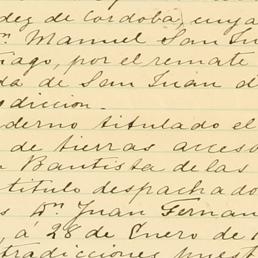 dez de Córdoba, cuya
Dn. Manuel San Ju
iago, por el remate
da de San Juan d
diccion.
aderno titulado el
de tierras acceso
n Bautista de las
titulo despachado
s Dn. Juan Fernan
, á 28 de Enero de 1
tradicciones puest